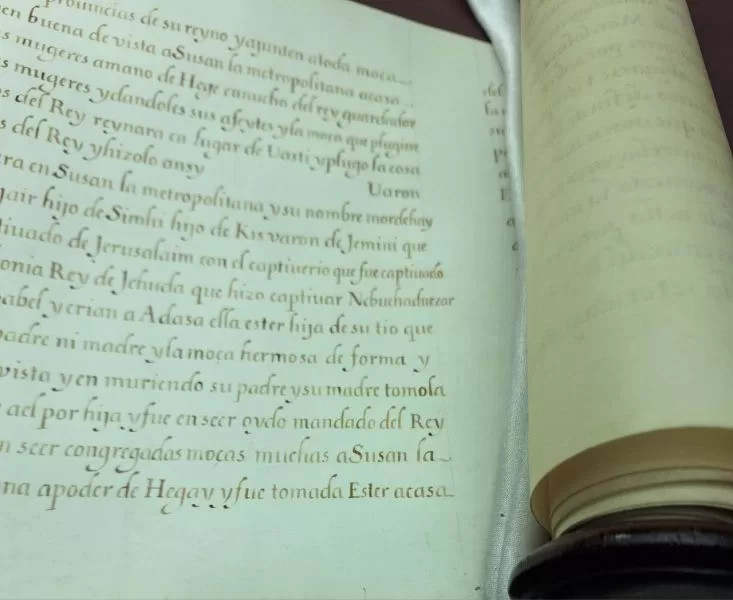 prouincias de su reyno yajunten atoda moça
en buena de vista aSusan la metropolitana acasa
s mugeres amano de Hege eunucho del rey guardador
s mugeres ydandoles sus afeytes yla moça que plugiere
s del Rey reynara en lugar de Uasti yplugo la cosa
s del Rey yhizolo ansy
Uaron
ra en Susan la metropolitana ysu nombre mordehay
jair hijo de Simhi hijo de Kis varon de Jemini que
tiuado de Jerusalaim con el captiuerio que fue captiuado
onia Rey de Jehuda que hizo captiuar Nebuchadnezar
abel ycrian a Adasa ella ester hija de su tio que
padre ni madre yla moça hermosa de forma y
vista yen muriendo su padre ysu madre tomola
ael por hija yfue en seer oydo mandado del Rey
n seer congregadas moças muchas aSusan la
na apoder de Hegay yfue tomada Ester acasa